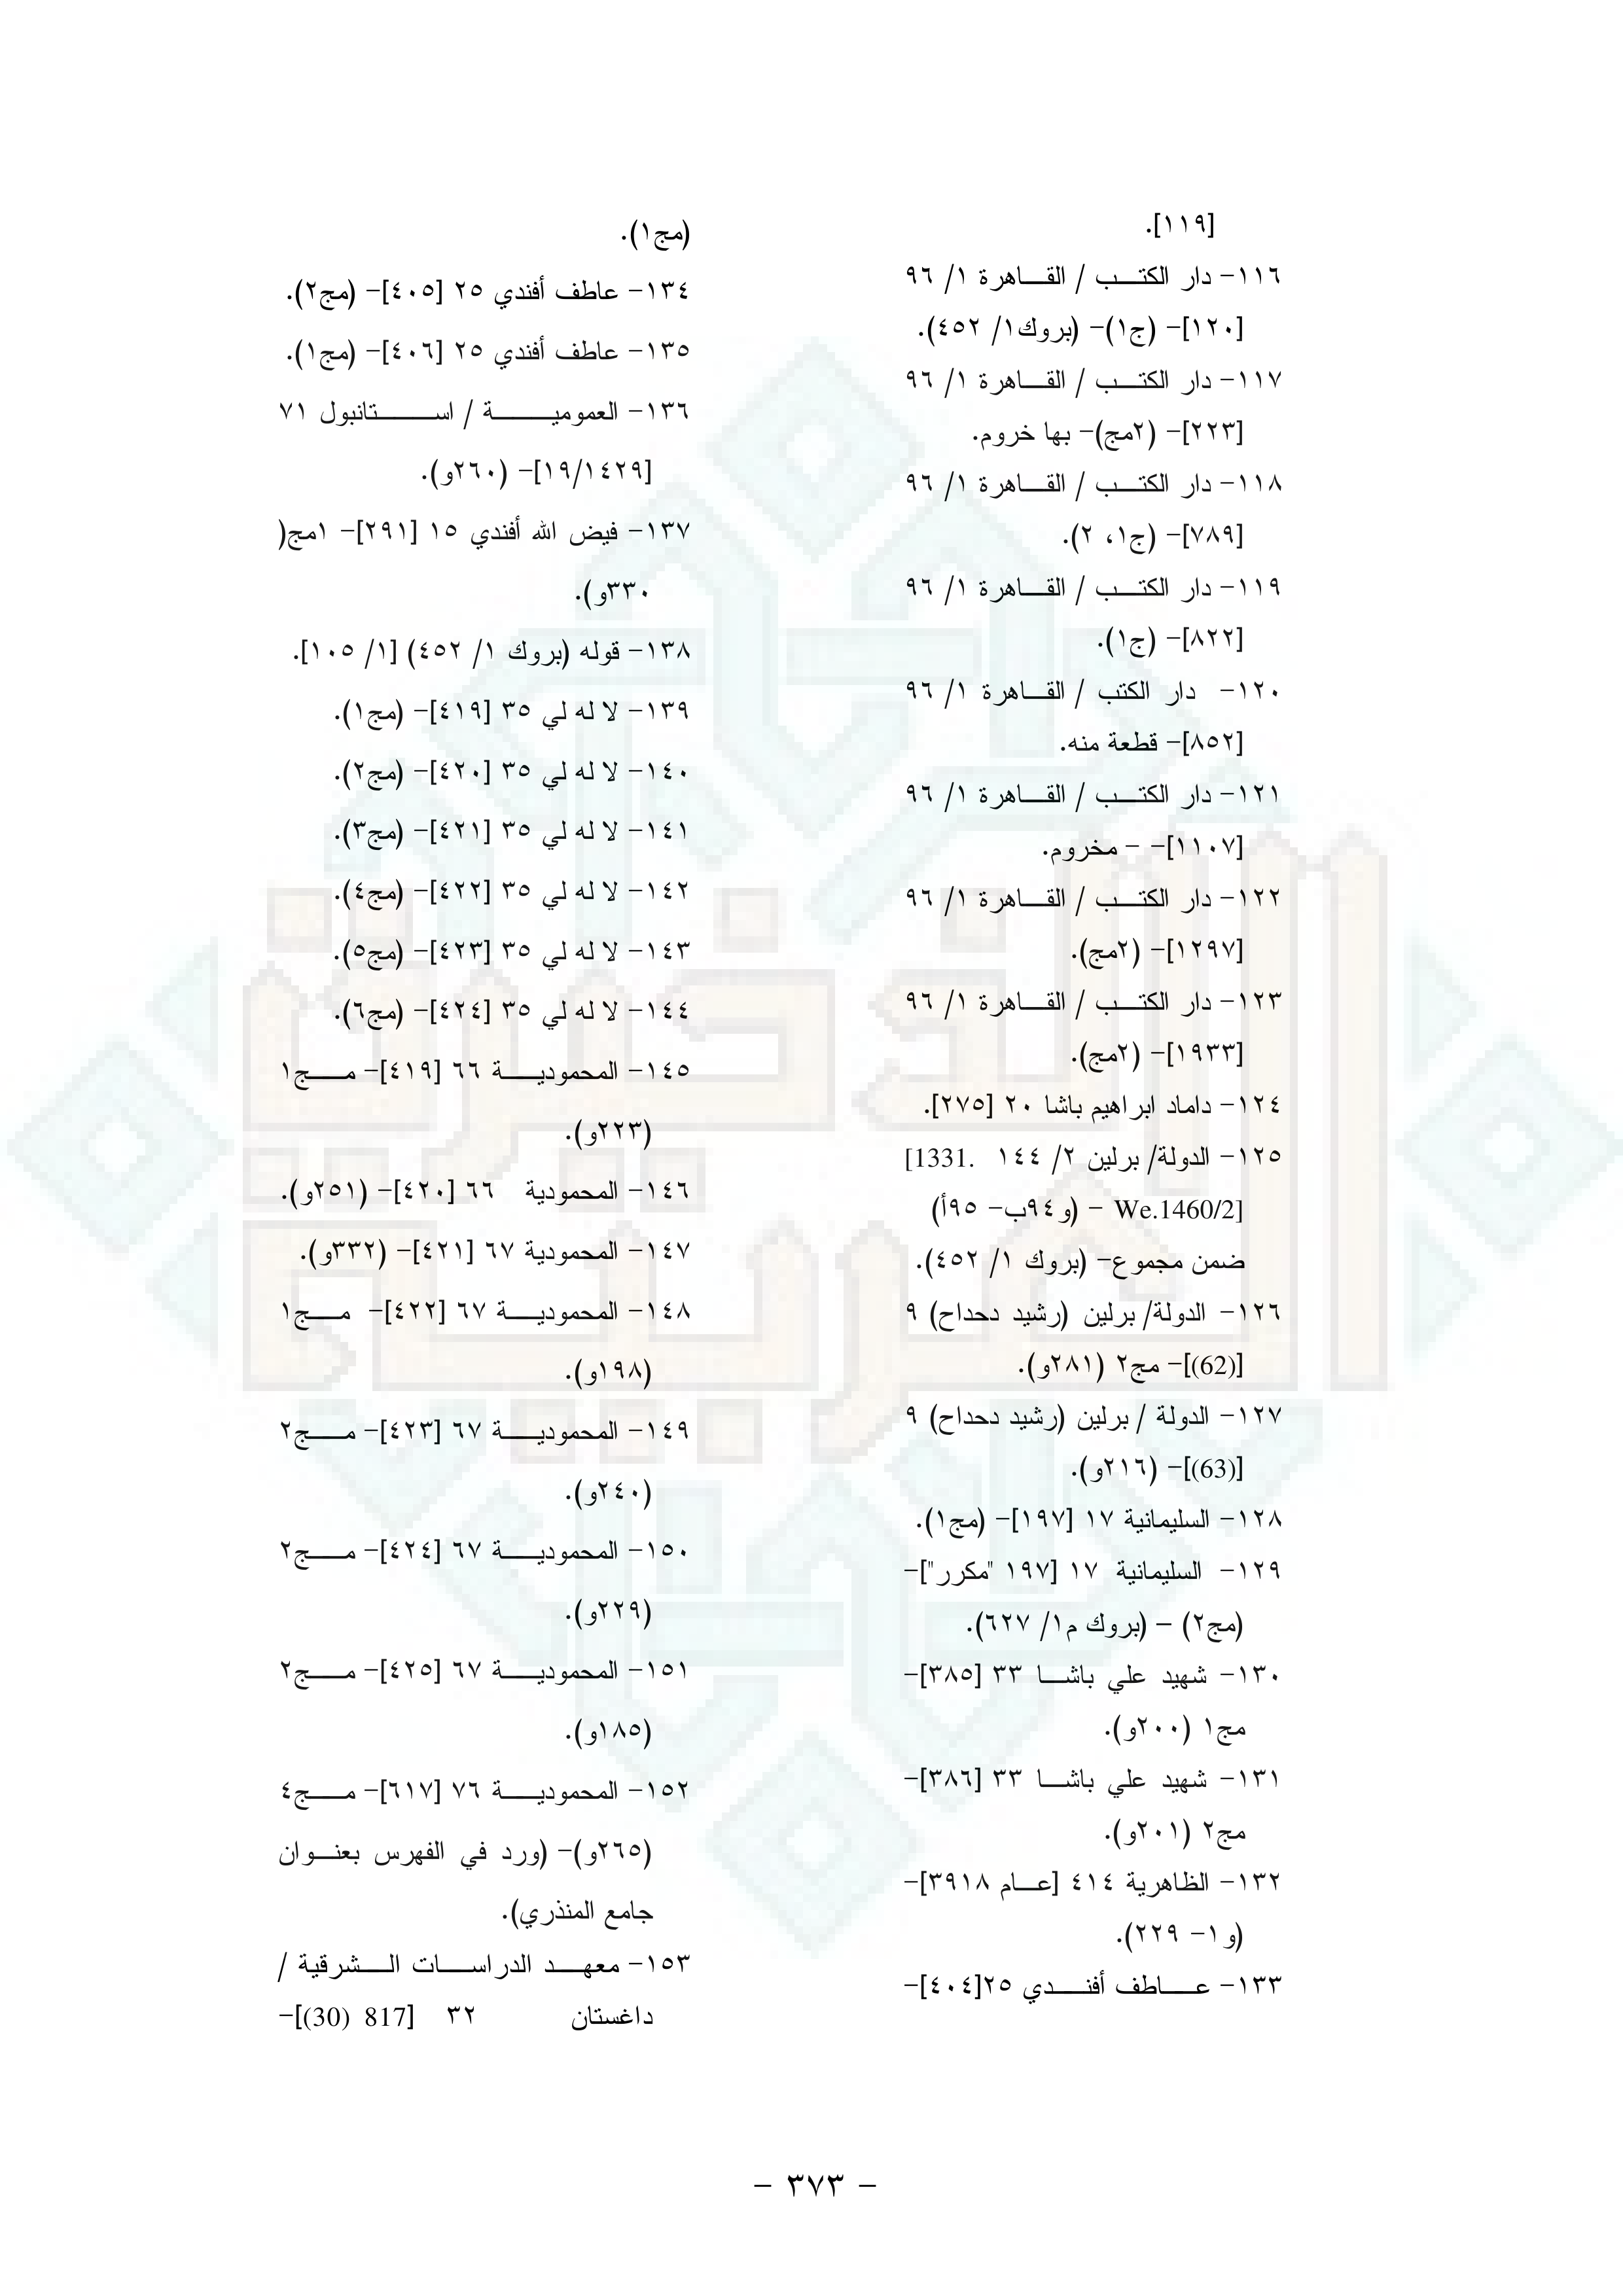 [١١٩].
١١٦- دار الكتب / القاهرة ١/ ٩٦
[١٢٠]- (ج١)- (بروك١/ ٤٥٢).
١١٧- دار الكتب / القاهرة ١/ ٩٦
[٢٢٣]- (٢مج)- بها خروم.
١١٨- دار الكتب / القاهرة ١/ ٩٦
[٧٨٩]- (ج١، ٢).
١١٩- دار الكتب / القاهرة ١/ ٩٦
[٨٢٢]- (ج١).
١٢٠- دار الكتب / القاهرة ١/ ٩٦
[٨٥٢]- قطعة منه.
١٢١- دار الكتب / القاهرة ١/ ٩٦
[١١٠٧]- - مخروم.
١٢٢- دار الكتب / القاهرة ١/ ٩٦
[١٢٩٧]- (٢مج).
١٢٣- دار الكتب / القاهرة ١/ ٩٦
[١٩٣٣]- (٢مج).
١٢٤- داماد ابراهيم باشا ٢٠ [٢٧٥].
١٢٥- الدولة/ برلين ٢/ ١٤٤ [1331.
We.1460/2] - (و٩٤ب- ٩٥أ)
ضمن مجموع- (بروك ١/ ٤٥٢).
١٢٦- الدولة/ برلين (رشيد دحداح) ٩
[(62)]- مج٢ (٢٨١و).
١٢٧- الدولة / برلين (رشيد دحداح) ٩
[(63)]- (٢١٦و).
١٢٨- السليمانية ١٧ [١٩٧]- (مج١).
١٢٩- السليمانية ١٧ [١٩٧ "مكرر"]-
(مج٢) - (بروك م١/ ٦٢٧).
١٣٠- شهيد علي باشا ٣٣ [٣٨٥]-
مج١ (٢٠٠و).
١٣١- شهيد علي باشا ٣٣ [٣٨٦]-
مج٢ (٢٠١و).
١٣٢- الظاهرية ٤١٤ [عام ٣٩١٨]-
(و١- ٢٢٩).
١٣٣- عاطف أفندي ٢٥[٤٠٤]-
(مج١).
١٣٤- عاطف أفندي ٢٥ [٤٠٥]- (مج٢).
١٣٥- عاطف أفندي ٢٥ [٤٠٦]- (مج١).
١٣٦- العمومية / استانبول ٧١
[١٩/١٤٢٩]- (٢٦٠و).
١٣٧- فيض الله أفندي ١٥ [٢٩١]- ١مج(
٣٣٠و).
١٣٨- قوله (بروك ١/ ٤٥٢) [١/ ١٠٥].
١٣٩- لا له لي ٣٥ [٤١٩]- (مج١).
١٤٠- لا له لي ٣٥ [٤٢٠]- (مج٢).
١٤١- لا له لي ٣٥ [٤٢١]- (مج٣).
١٤٢- لا له لي ٣٥ [٤٢٢]- (مج٤).
١٤٣- لا له لي ٣٥ [٤٢٣]- (مج٥).
١٤٤- لا له لي ٣٥ [٤٢٤]- (مج٦).
١٤٥- المحمودية ٦٦ [٤١٩]- مج١
(٢٢٣و).
١٤٦- المحمودية ٦٦ [٤٢٠]- (٢٥١و).
١٤٧- المحمودية ٦٧ [٤٢١]- (٣٣٢و).
١٤٨- المحمودية ٦٧ [٤٢٢]- مج١
(١٩٨و).
١٤٩- المحمودية ٦٧ [٤٢٣]- مج٢
(٢٤٠و).
١٥٠- المحمودية ٦٧ [٤٢٤]- مج٢
(٢٢٩و).
١٥١- المحمودية ٦٧ [٤٢٥]- مج٢
(١٨٥و).
١٥٢- المحمودية ٧٦ [٦١٧]- مج٤
(٢٦٥و)- (ورد في الفهرس بعنوان
جامع المنذري).
١٥٣- معهد الدراسات الشرقية /
داغستان ٣٢ [817 (30)]-
- ٣٧٣ -
الذخيرة
العربية